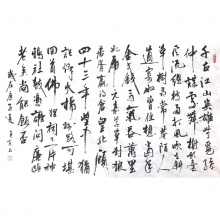 千古江山英雄無覓孫
仲謀處舞榭歌臺
風流總被雨打風吹去斜陽
草樹尋常巷陌人
道寄奴曾住想當年
金戈鐵馬氣吞萬里
如虎元嘉草草封狼
居胥贏得倉皇北顧
四十三年望中猶
記烽火揚州路可堪
回首佛狸祠下一片神
鴉社鼓憑誰問廉頗
老矣尚能飯否